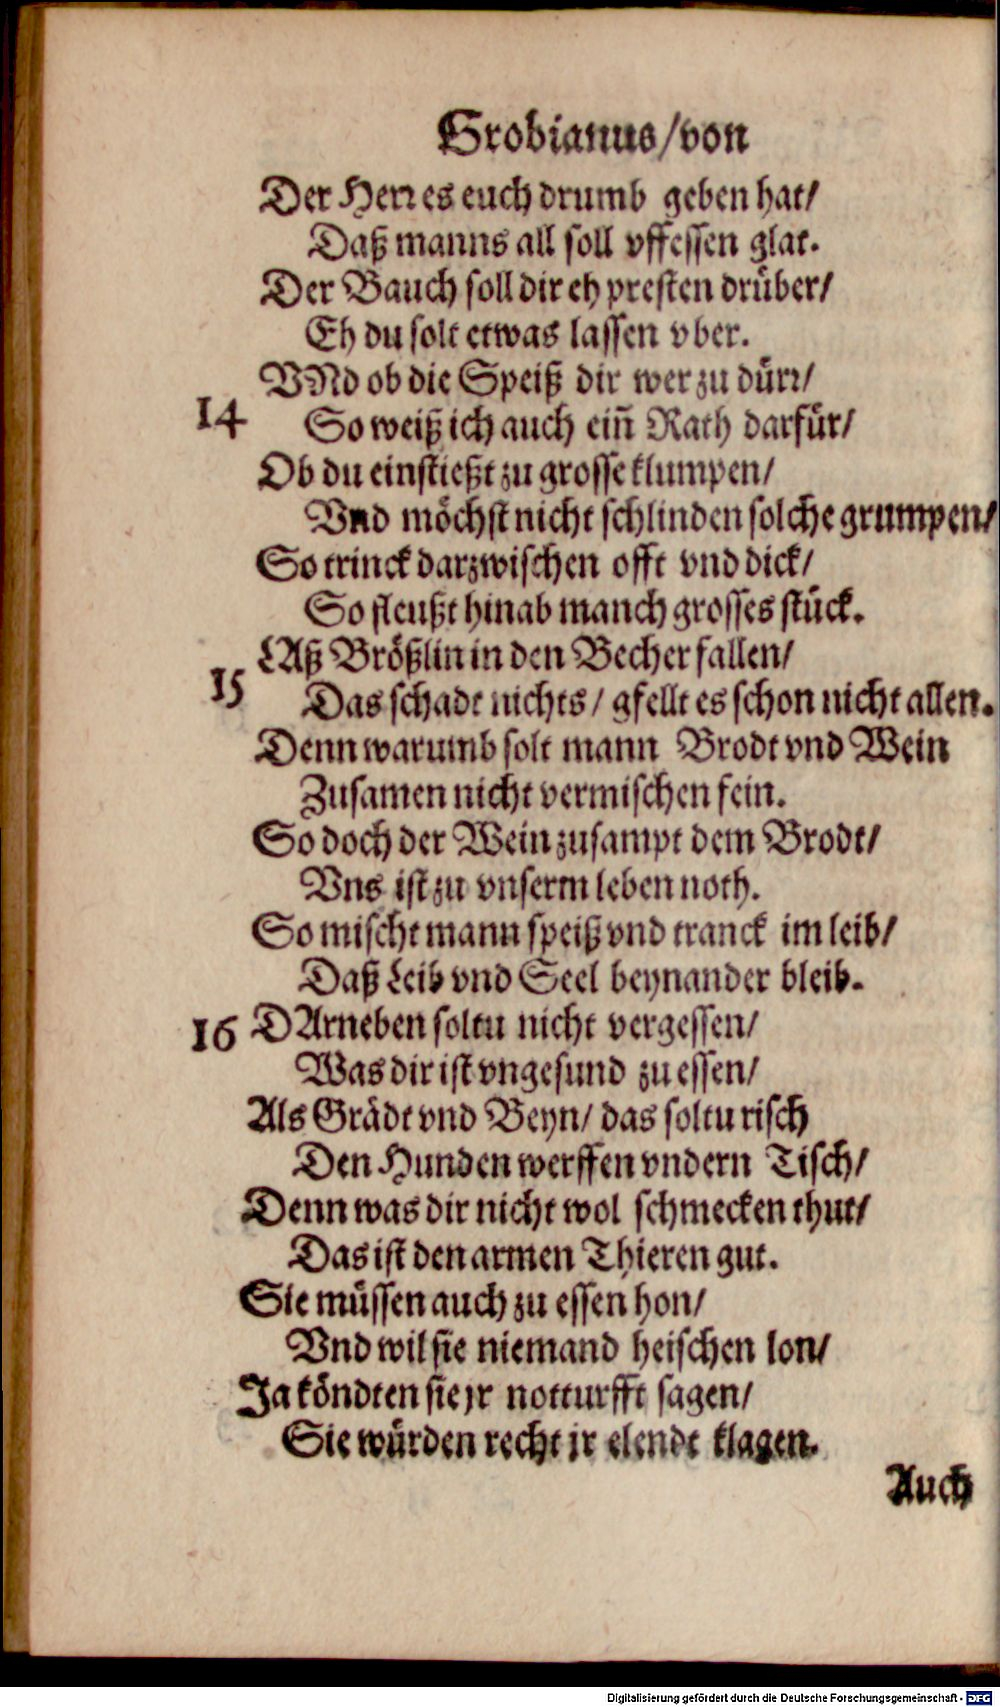 Grobianus/von
Der Herr es euch drumb geben hat/
Daß manns all soll vffessen glat.
Der Bauch soll dir eh presten drüber/
Eh du solt etwas lassen vber.
VNd ob die Speiß dir wer zu dürr/
14 So weiß ich auch ein̄ Rath darfür/
Ob du einstießt zu grosse klumpen/
Vnd möchst nicht schlinden solche grumpen/
So trinck darzwischen offt vnd dick/
So fleußt hinab manch grosses stück.
LAß Brößlin in den Becher fallen/
15 Das schadt nichts/ gfellt es schon nicht allen.
Denn warumb solt mann Brodt vnd Wein
Zusamen nicht vermischen fein.
So doch der Wein zusampt dem Brodt/
Vns ist zu vnserm leben noth.
So mischt mann speiß vnd tranck im leib/
Daß Leib vnd Seel beynander bleib.
16 DArneben soltu nicht vergessen/
Was dir ist vngesund zu essen/
Als Grädt vnd Beyn/ das soltu risch
Den Hunden werffen vndern Tisch/
Denn was dir nicht wol schmecken thut/
Das ist den armen Thieren gut.
Sie müssen auch zu essen hon/
Vnd wil sie niemand heischen lon/
Ja köndten sie jr notturfft sagen/
Sie würden recht jr elendt klagen.
Auch
Digitalisierung gefördert durch die Deutsche Forschungsgemeinschaft - DFG